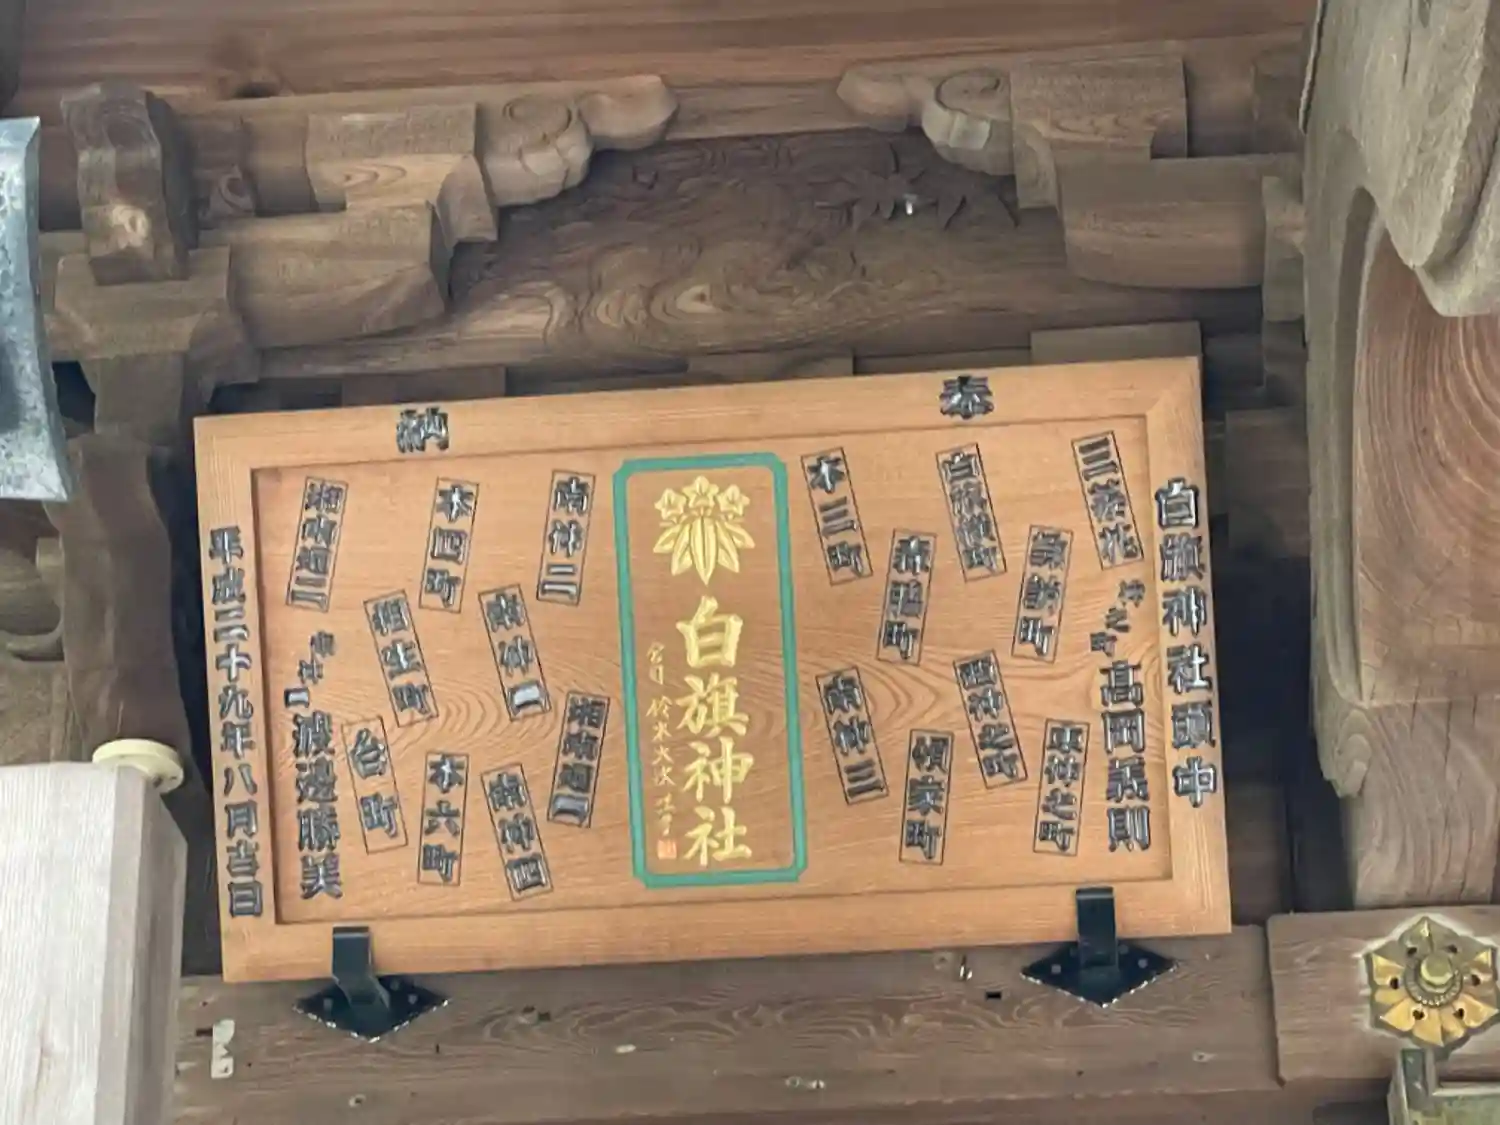 奉納
白旗神社頭中
神之町 髙岡義則
三番花
白旗横町
諏訪町
本三町
東神之町
西神之町
幌家町
南仲三
白旗神社
宮司 鈴木大次
南仲二
南仲一
湘南通一
南仲四
本四町
相生町
本六町
湘南通二
台町
南仲一 渡邉勝美
平成二十九年八月吉日